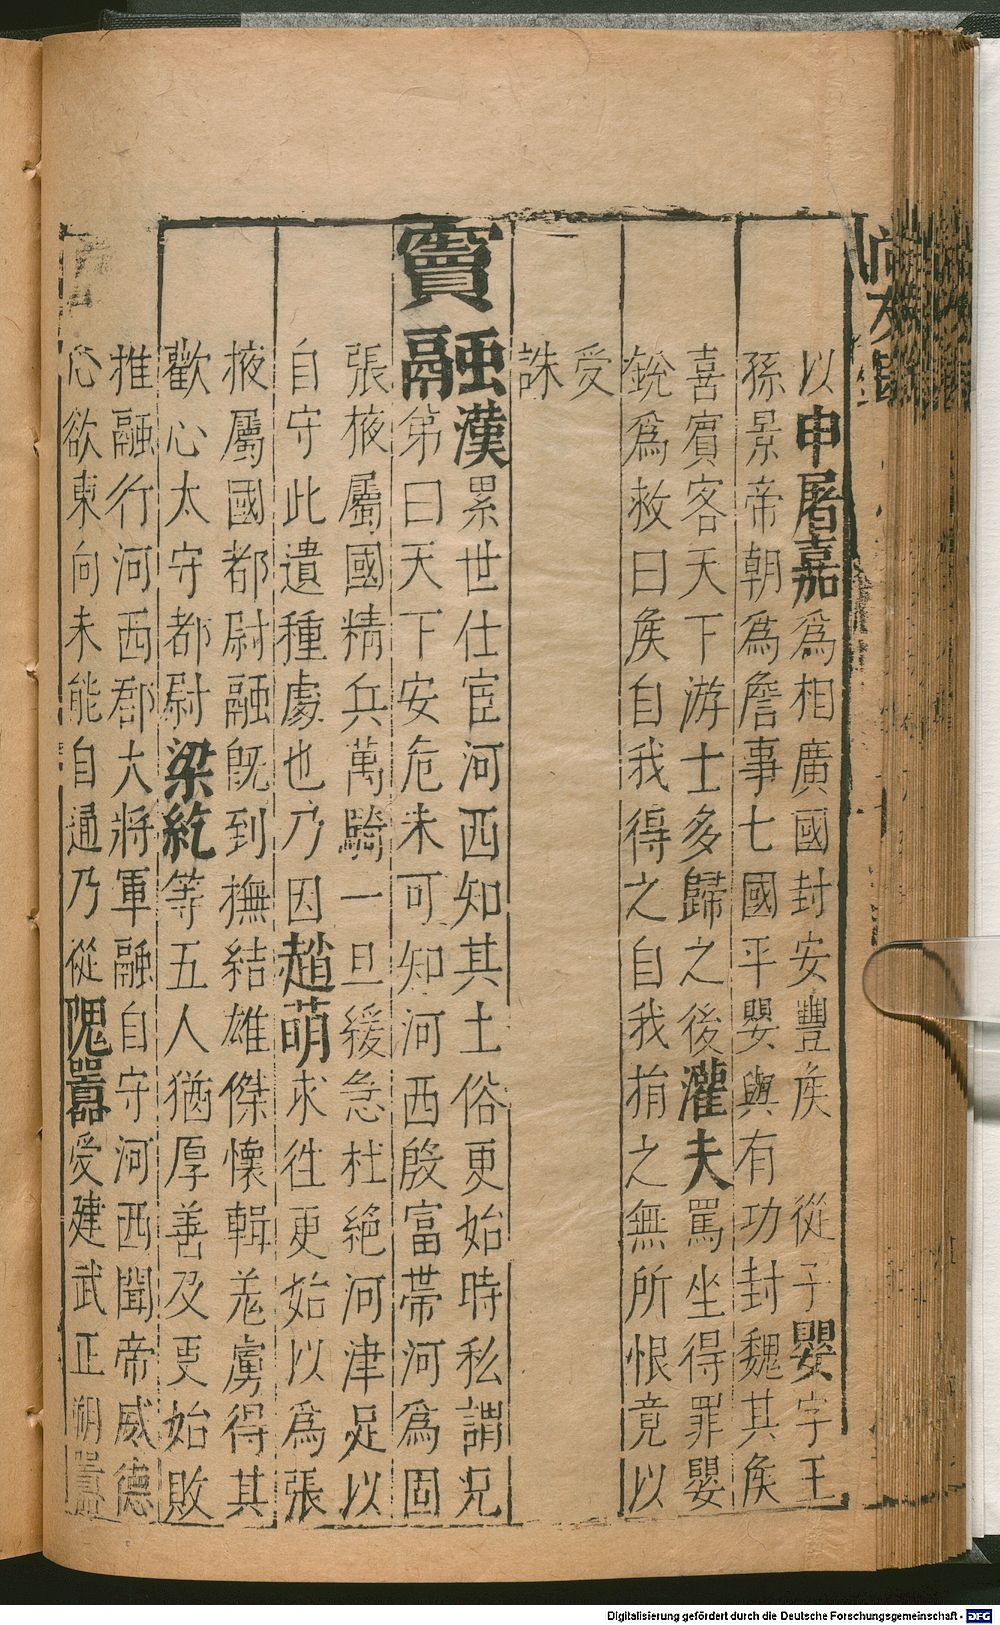 以申屠嘉爲相廣國封安豐侯 從子嬰字王
孫景帝朝爲詹事七國平嬰與有功封魏其侯
喜賓客天下游士多歸之後灌夫罵坐得罪嬰
銳爲救曰侯自我得之自我捐之無所恨竟以
受
誅
竇融漢累世仕宦河西知其土俗更始時私謂兄
弟曰天下安危未可知河西殷富帶河爲固
張掖屬國精兵萬騎一旦緩急杜絕河津足以
自守此遺種處也乃因趙萌求徃更始以爲張
掖屬國都尉融旣到撫結雄傑懷輯羌虜得其
歡心太守都尉梁統等五人猶厚善及更始敗
推融行河西郡大將軍融自守河西聞帝威德
心欲東向未能自通乃從隗囂受建武正朔囂
Digitalisierung gefördert durch die Deutsche Forschungsgemeinschaft - DFG